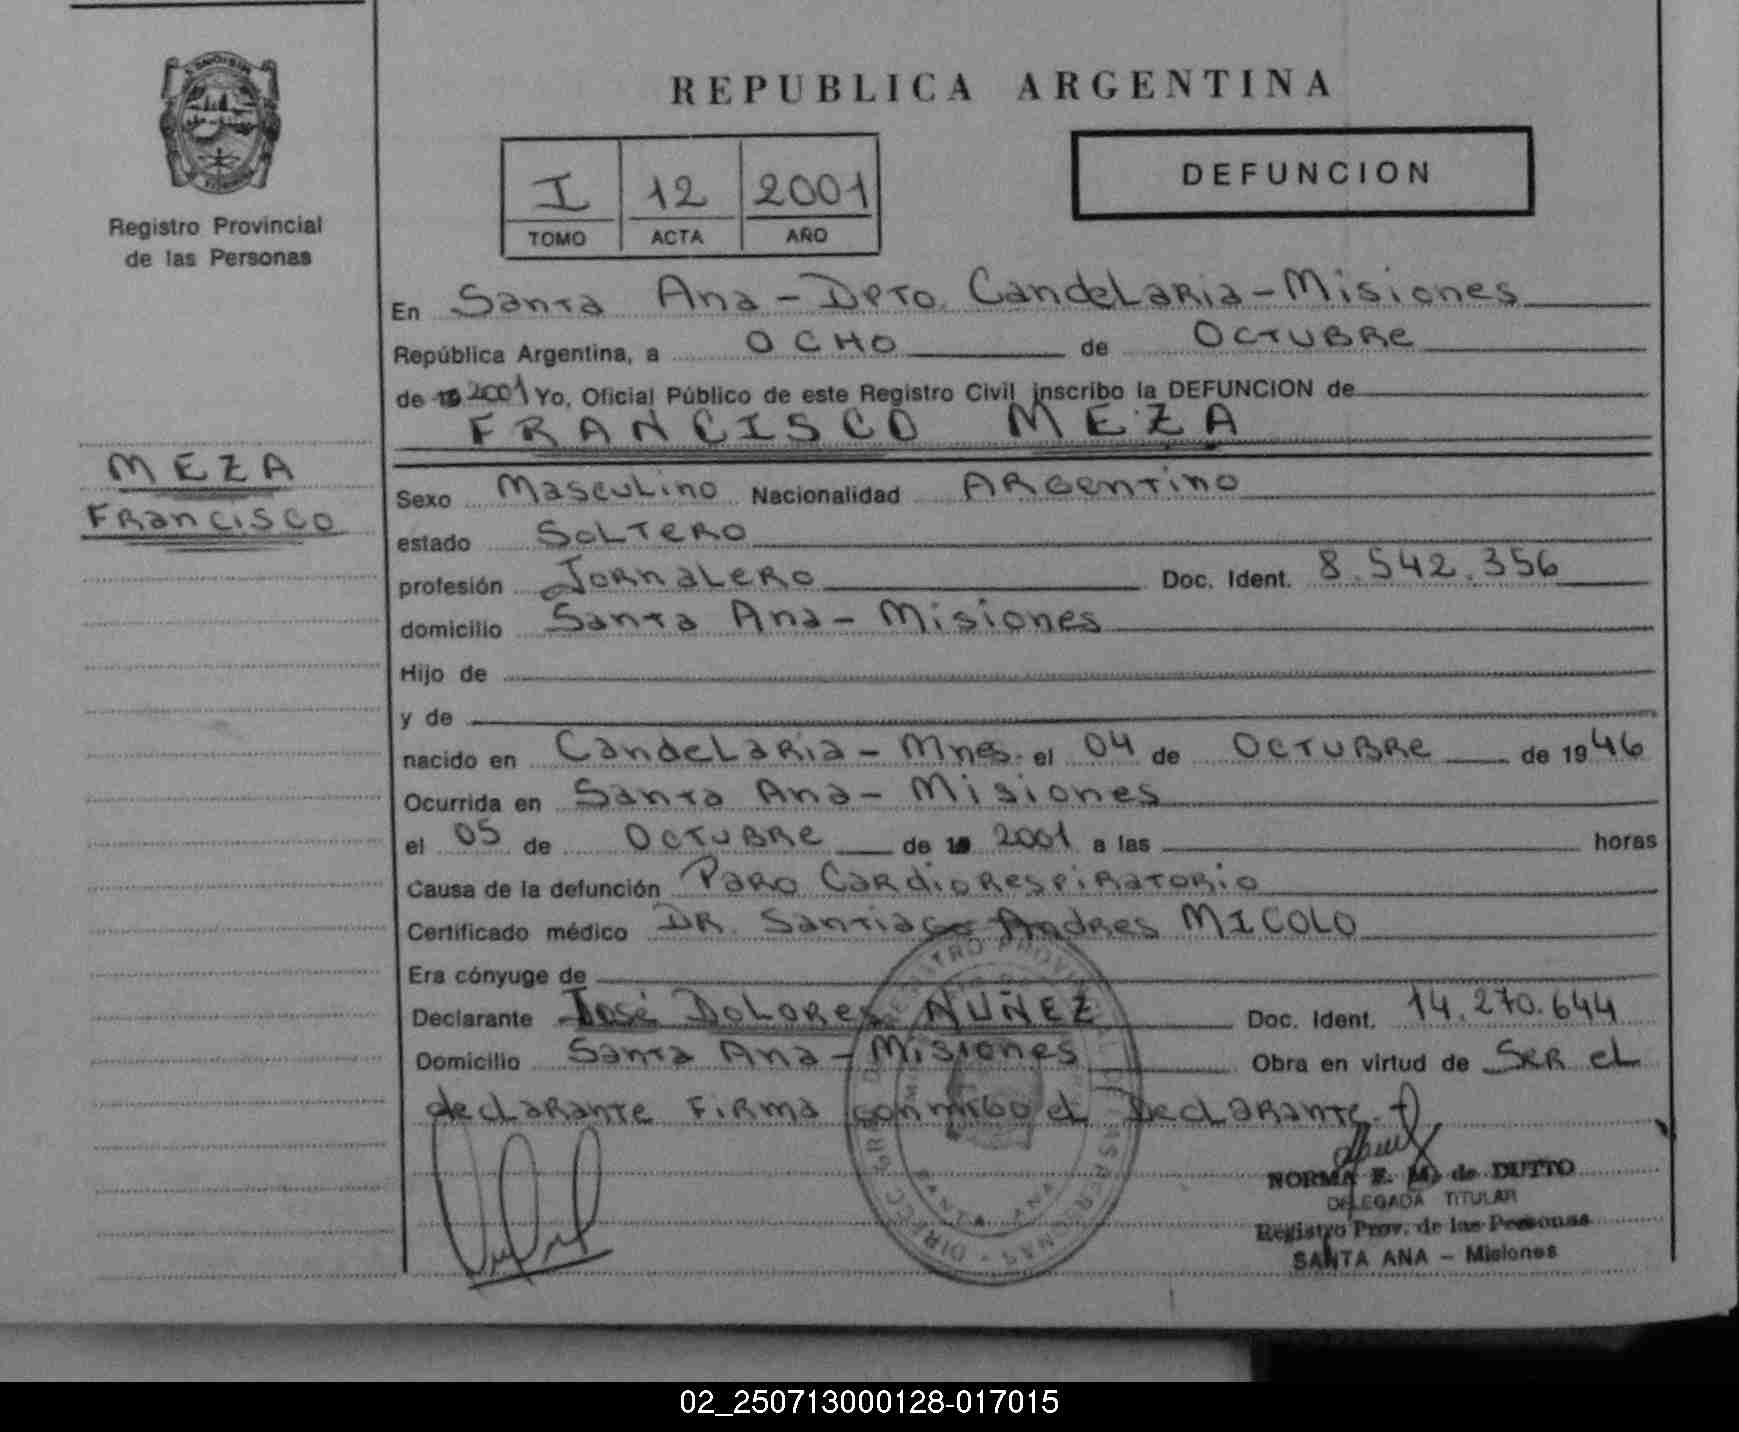 REPUBLICA ARGENTINA
Registro Provincial
de las Personas
I 12 2001
TOMO ACTA AÑO
DEFUNCION
En Santa Ana - Dpto. Candelaria - Misiones
República Argentina, a OCHO de Octubre
de 2001 Yo, Oficial Público de este Registro Civil inscribo la DEFUNCION de
FRANCISCO MEZA
MEZA
Francisco
Sexo Masculino Nacionalidad Argentino
estado Soltero
profesión Jornalero Doc. Ident. 8.542.356
domicilio Santa Ana - Misiones
Hijo de
y de
nacido en Candelaria - Mnes. el 04 de Octubre de 1946
Ocurrida en Santa Ana - Misiones
el 05 de Octubre de 2001 a las horas
Causa de la defunción Paro Cardiorespiratorio
Certificado médico DR. Santiago Andres MICOLO
Era cónyuge de
Declarante José Dolores NUÑEZ Doc. Ident. 14.270.644
Domicilio Santa Ana - Misiones Obra en virtud de Ser el
declarante Firma conmigo el Declarante.
NORMA E. M. de DUTTO
DELEGADA TITULAR
Registro Prov. de las Personas
SANTA ANA - Misiones
SANTA ANA
02_250713000128-017015